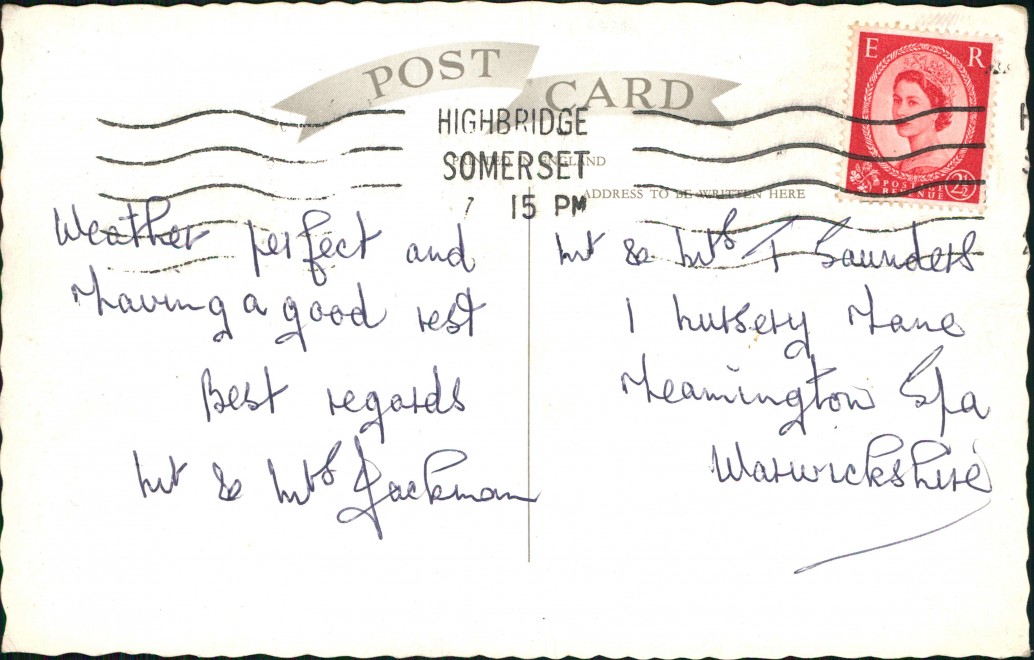 POST CARD
HIGHBRIDGE
SOMERSET
7 15 PM
PRINTED IN ENGLAND
ADDRESS TO BE WRITTEN HERE
E R
POSTAGE
REVENUE
2½
Weather perfect and
Having a good rest
Best regards
Mr & Mrs Jackman
Mr & Mrs T Saunders
1 Nursery Lane
Leamington Spa
Warwickshire